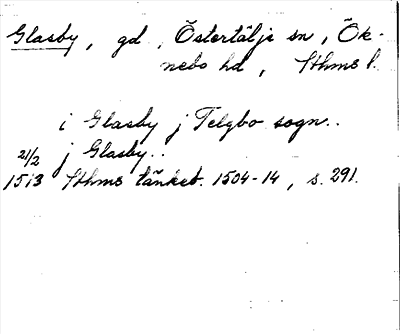 Glasby, gd, Östertälje sn, Ök-
nebo hd, Sthms l.
i Glasby j Telgbo sogn..
21/2 j Glasby..
1513 Sthms tänkeb. 1504-14, s. 291.